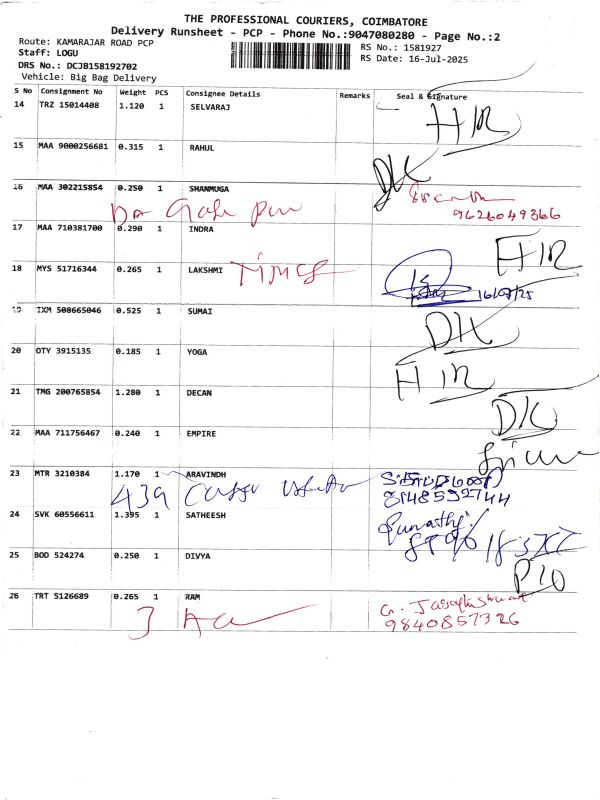 THE PROFESSIONAL COURIERS, COIMBATORE
Delivery Runsheet - PCP - Phone No.:9047080280 - Page No.:2
Route: KAMARAJAR ROAD PCP
Staff: LOGU
DRS No.: DCJB158192702
Vehicle: Big Bag Delivery
RS No.: 1581927
RS Date: 16-Jul-2025
S No Consignment No Weight PCS Consignee Details Remarks Seal & Signature
14 TRZ 15014408 1.120 1 SELVARAJ
15 MAA 9000256681 0.315 1 RAHUL
16 MAA 302215854 0.250 1 SHANMUGA
9626049366
17 MAA 710381700 0.290 1 INDRA
18 MYS 51716344 0.265 1 LAKSHMI TIMES
16/07/25
19 IXM 508665046 0.525 1 SUMAI
20 OTY 3915135 0.185 1 YOGA
21 TMG 200765854 1.280 1 DECAN
22 MAA 711756467 0.240 1 EMPIRE
23 MTR 3210384 1.170 1 ARAVINDH
439
8148592744
24 SVK 60556611 1.395 1 SATHEESH
25 BOD 524274 0.250 1 DIVYA
26 TRT 5126689 0.265 1 RAM
9840857326